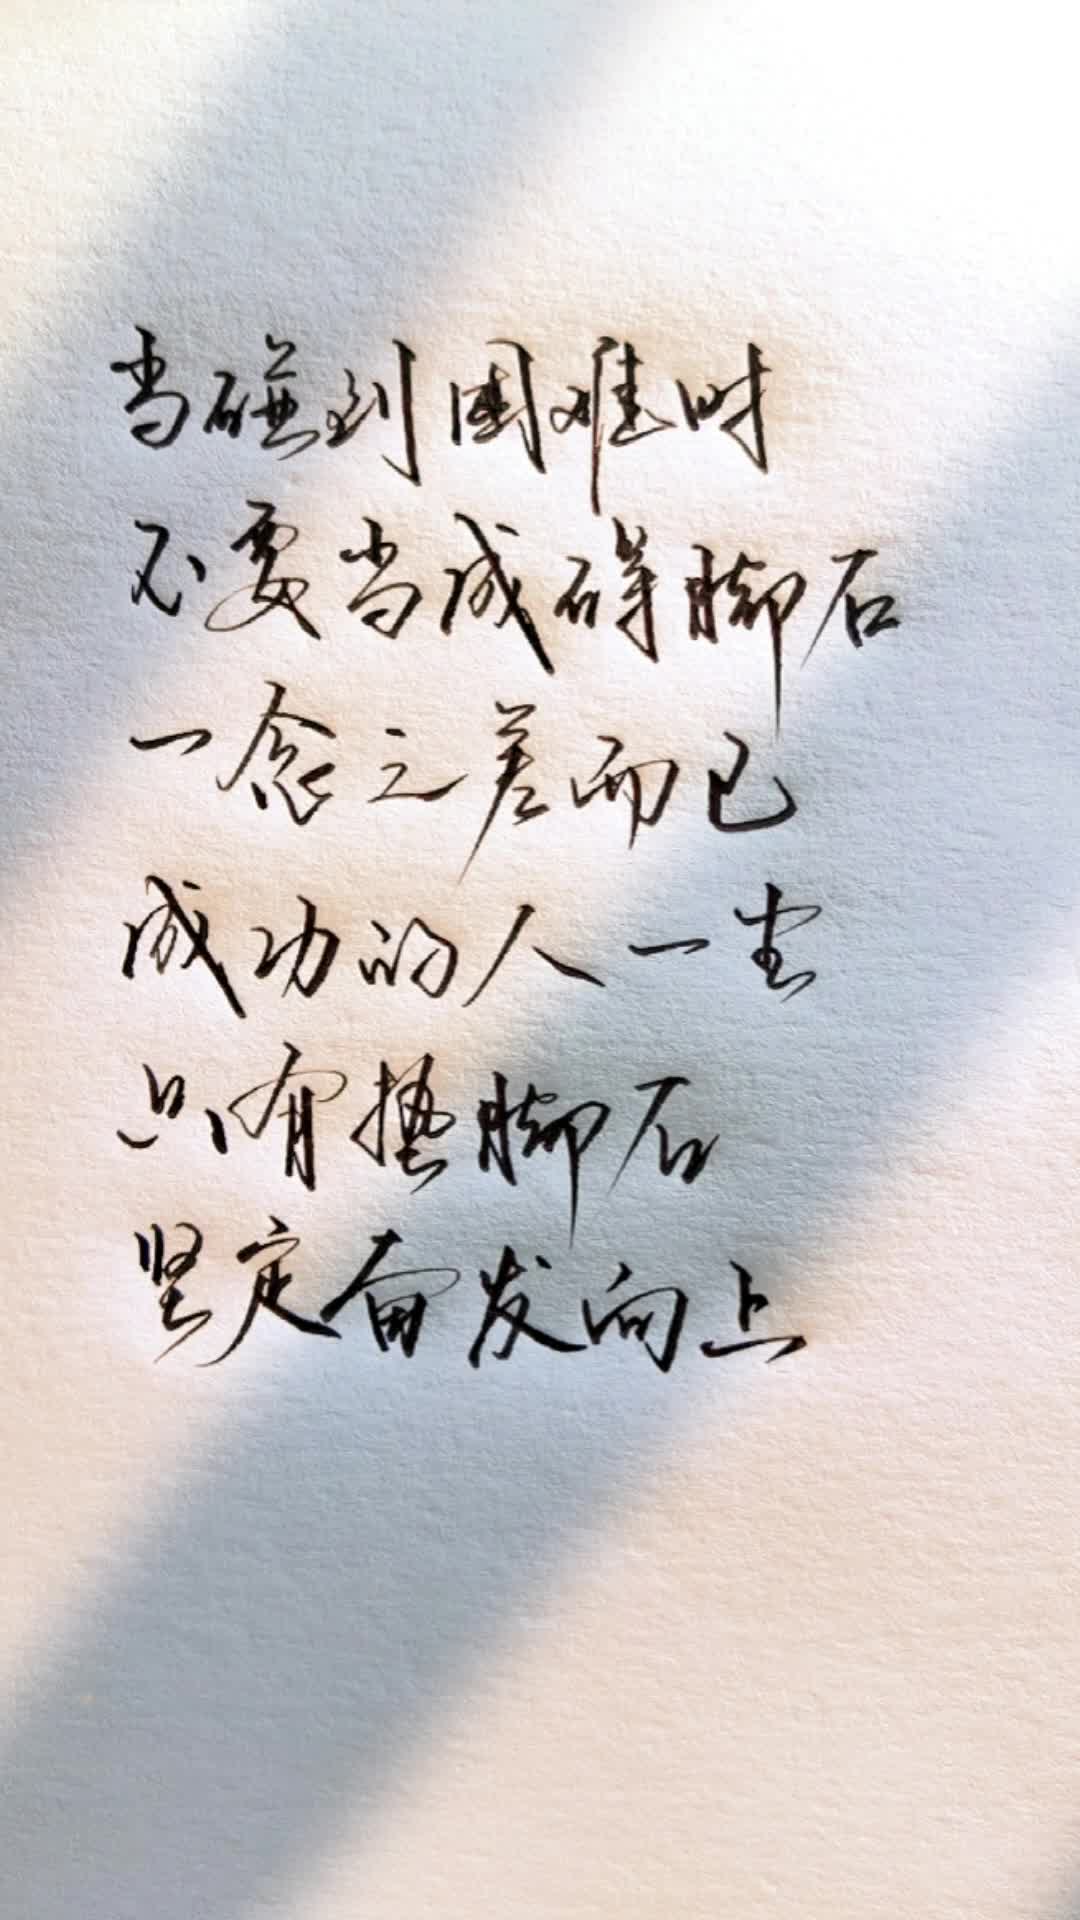 当碰到困难时
不要当成碍脚石
一念之差而已
成功的人一生
只有垫脚石
坚定奋发向上